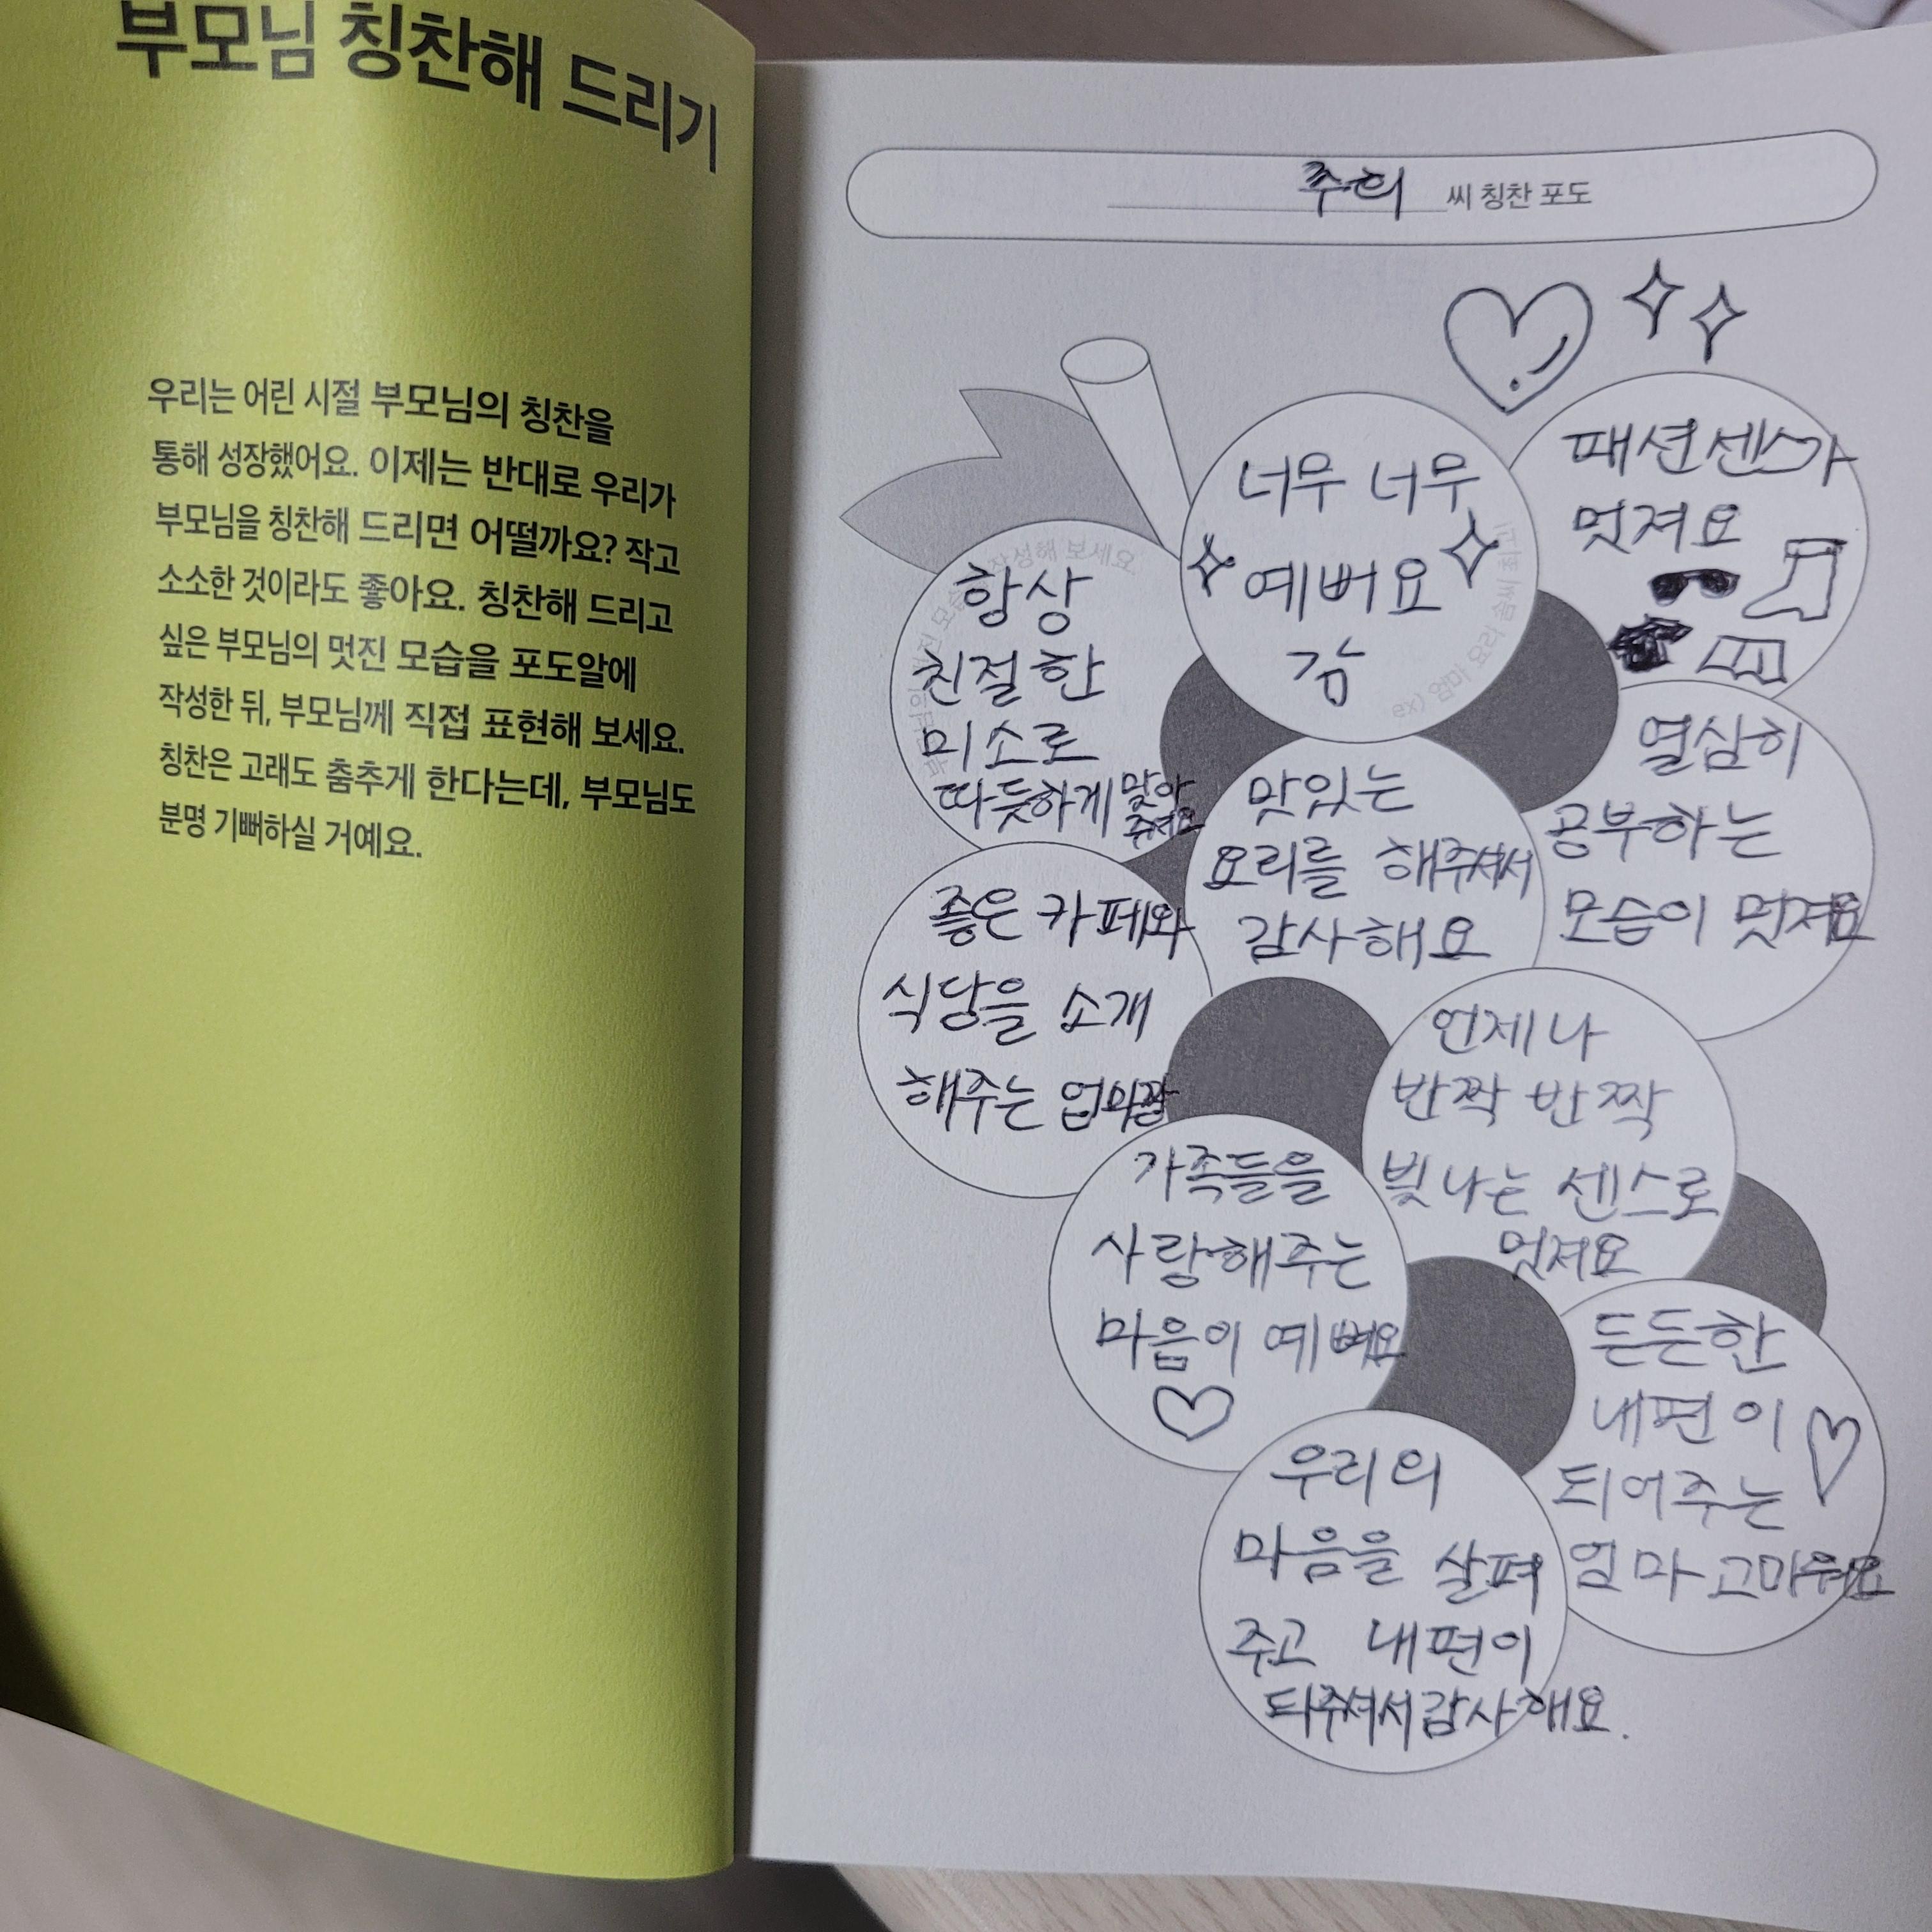 부모님 칭찬해 드리기
우리는 어린 시절 부모님의 칭찬을
통해 성장했어요. 이제는 반대로 우리가
부모님을 칭찬해 드리면 어떨까요? 작고
소소한 것이라도 좋아요. 칭찬해 드리고
싶은 부모님의 멋진 모습을 포도알에
작성한 뒤, 부모님께 직접 표현해 보세요.
칭찬은 고래도 춤추게 한다는데, 부모님도
분명 기뻐하실 거예요.
주희 씨 칭찬 포도
패션센스가
멋져요
너무 너무
예뻐요
감
작성해 보세요.
항상
친절한
미소로
따듯하게 맞아
주세요
열심히
공부하는
모습이 멋져요
맛있는
요리를 해주셔서
감사해요
좋은 카페와
식당을 소개
해주는 엄마짱
언제나
반짝 반짝
빛나는 센스로
멋져요
가족들을
사랑해주는
마음이 예뻐요
든든한
내편이
되어주는
엄마 고마워요
우리의
마음을 살펴
주고 내편이
되주셔서 감사해요.